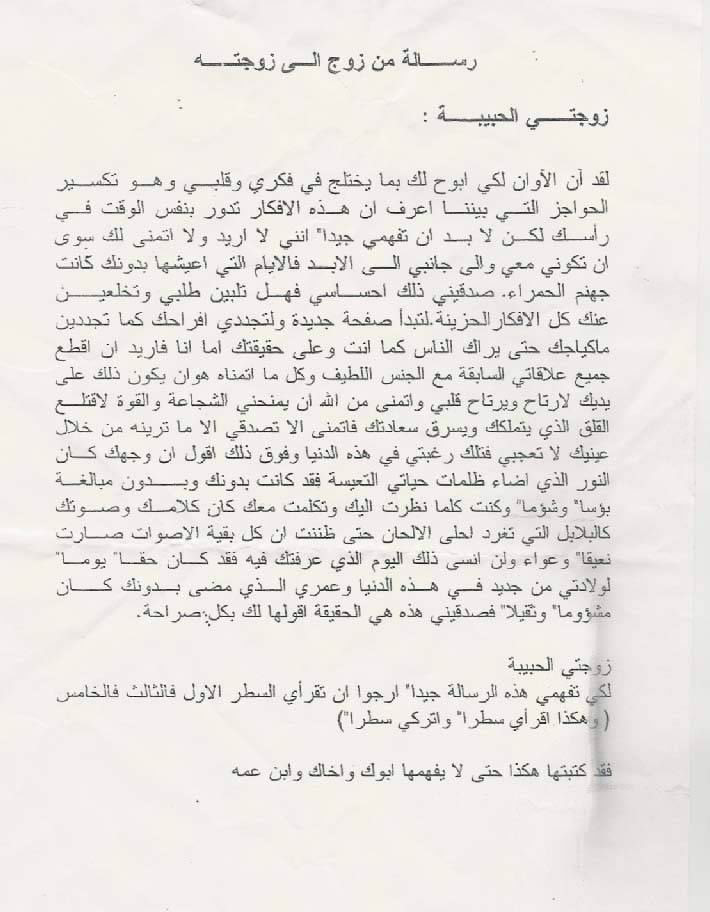 رســـالة من زوج الـى زوجتـــه
زوجتـــي الحبيبـــة :
لقد آن الأوان لكي ابوح لك بما يختلج في فكري وقلبـي وهـو تكسـير
الحواجز التـي بيننـا اعرف ان هـذه الافكار تدور بنفس الوقت فـي
رأسـك لكـن لا بـد ان تفهمي جيدا" انني لا اريد ولا اتمنى لك سوى
ان تكوني معي والى جانبي الـى الابـد فالايام التي اعيشها بدونك كانت
جهنم الحمراء. صدقيني ذلك احساسي فهـل تلبين طلبي وتخلعيـن
عنك كل الافكارالحزينة.لتبدأ صفحة جديدة ولتجددي افراحك كما تجددين
ماكياجك حتى يراك الناس كما انت وعلى حقيقتك اما انا فاريد ان اقطع
جميع علاقاتي السابقة مع الجنس اللطيف وكل ما اتمناه هوان يكون ذلك على
يديك لارتاح ويرتاح قلبي واتمنى من الله ان يمنحني الشجاعة والقوة لاقتلـع
القلق الذي يتملكك ويسرق سعادتك فاتمنى الا تصدقي الا ما ترينه من خلال
عينيك لا تعجبي فتلك رغبتي في هذه الدنيا وفوق ذلك اقول ان وجهك كـان
النور الذي اضاء ظلمات حياتي التعيسة فقد كانت بدونك وبـدون مبالغـة
بؤسا" وشؤما" وكنت كلما نظرت اليك وتكلمت معك كان كلامـك وصـوتك
كالبلابل التي تغرد احلى الالحان حتى ظننت ان كل بقية الاصوات صـارت
نعيقا" وعواء ولن انسى ذلك اليوم الذي عرفتك فيه فقد كـان حقـا" يومـا"
لولادتي من جديد فـي هـذه الدنيا وعمري الـذي مضى بـدونك كـان
مشؤوما" وثقيلا" فصدقيني هذه هي الحقيقة اقولها لك بكل صراحة.
زوجتي الحبيبة
لكي تفهمي هذه الرسالة جيدا" ارجوا ان تقرأي السطر الاول فالثالث فالخامس
( وهكذا اقرأي سطرا" واتركي سطرا")
فقد كتبتها هكذا حتى لا يفهمها ابوك واخاك وابن عمه